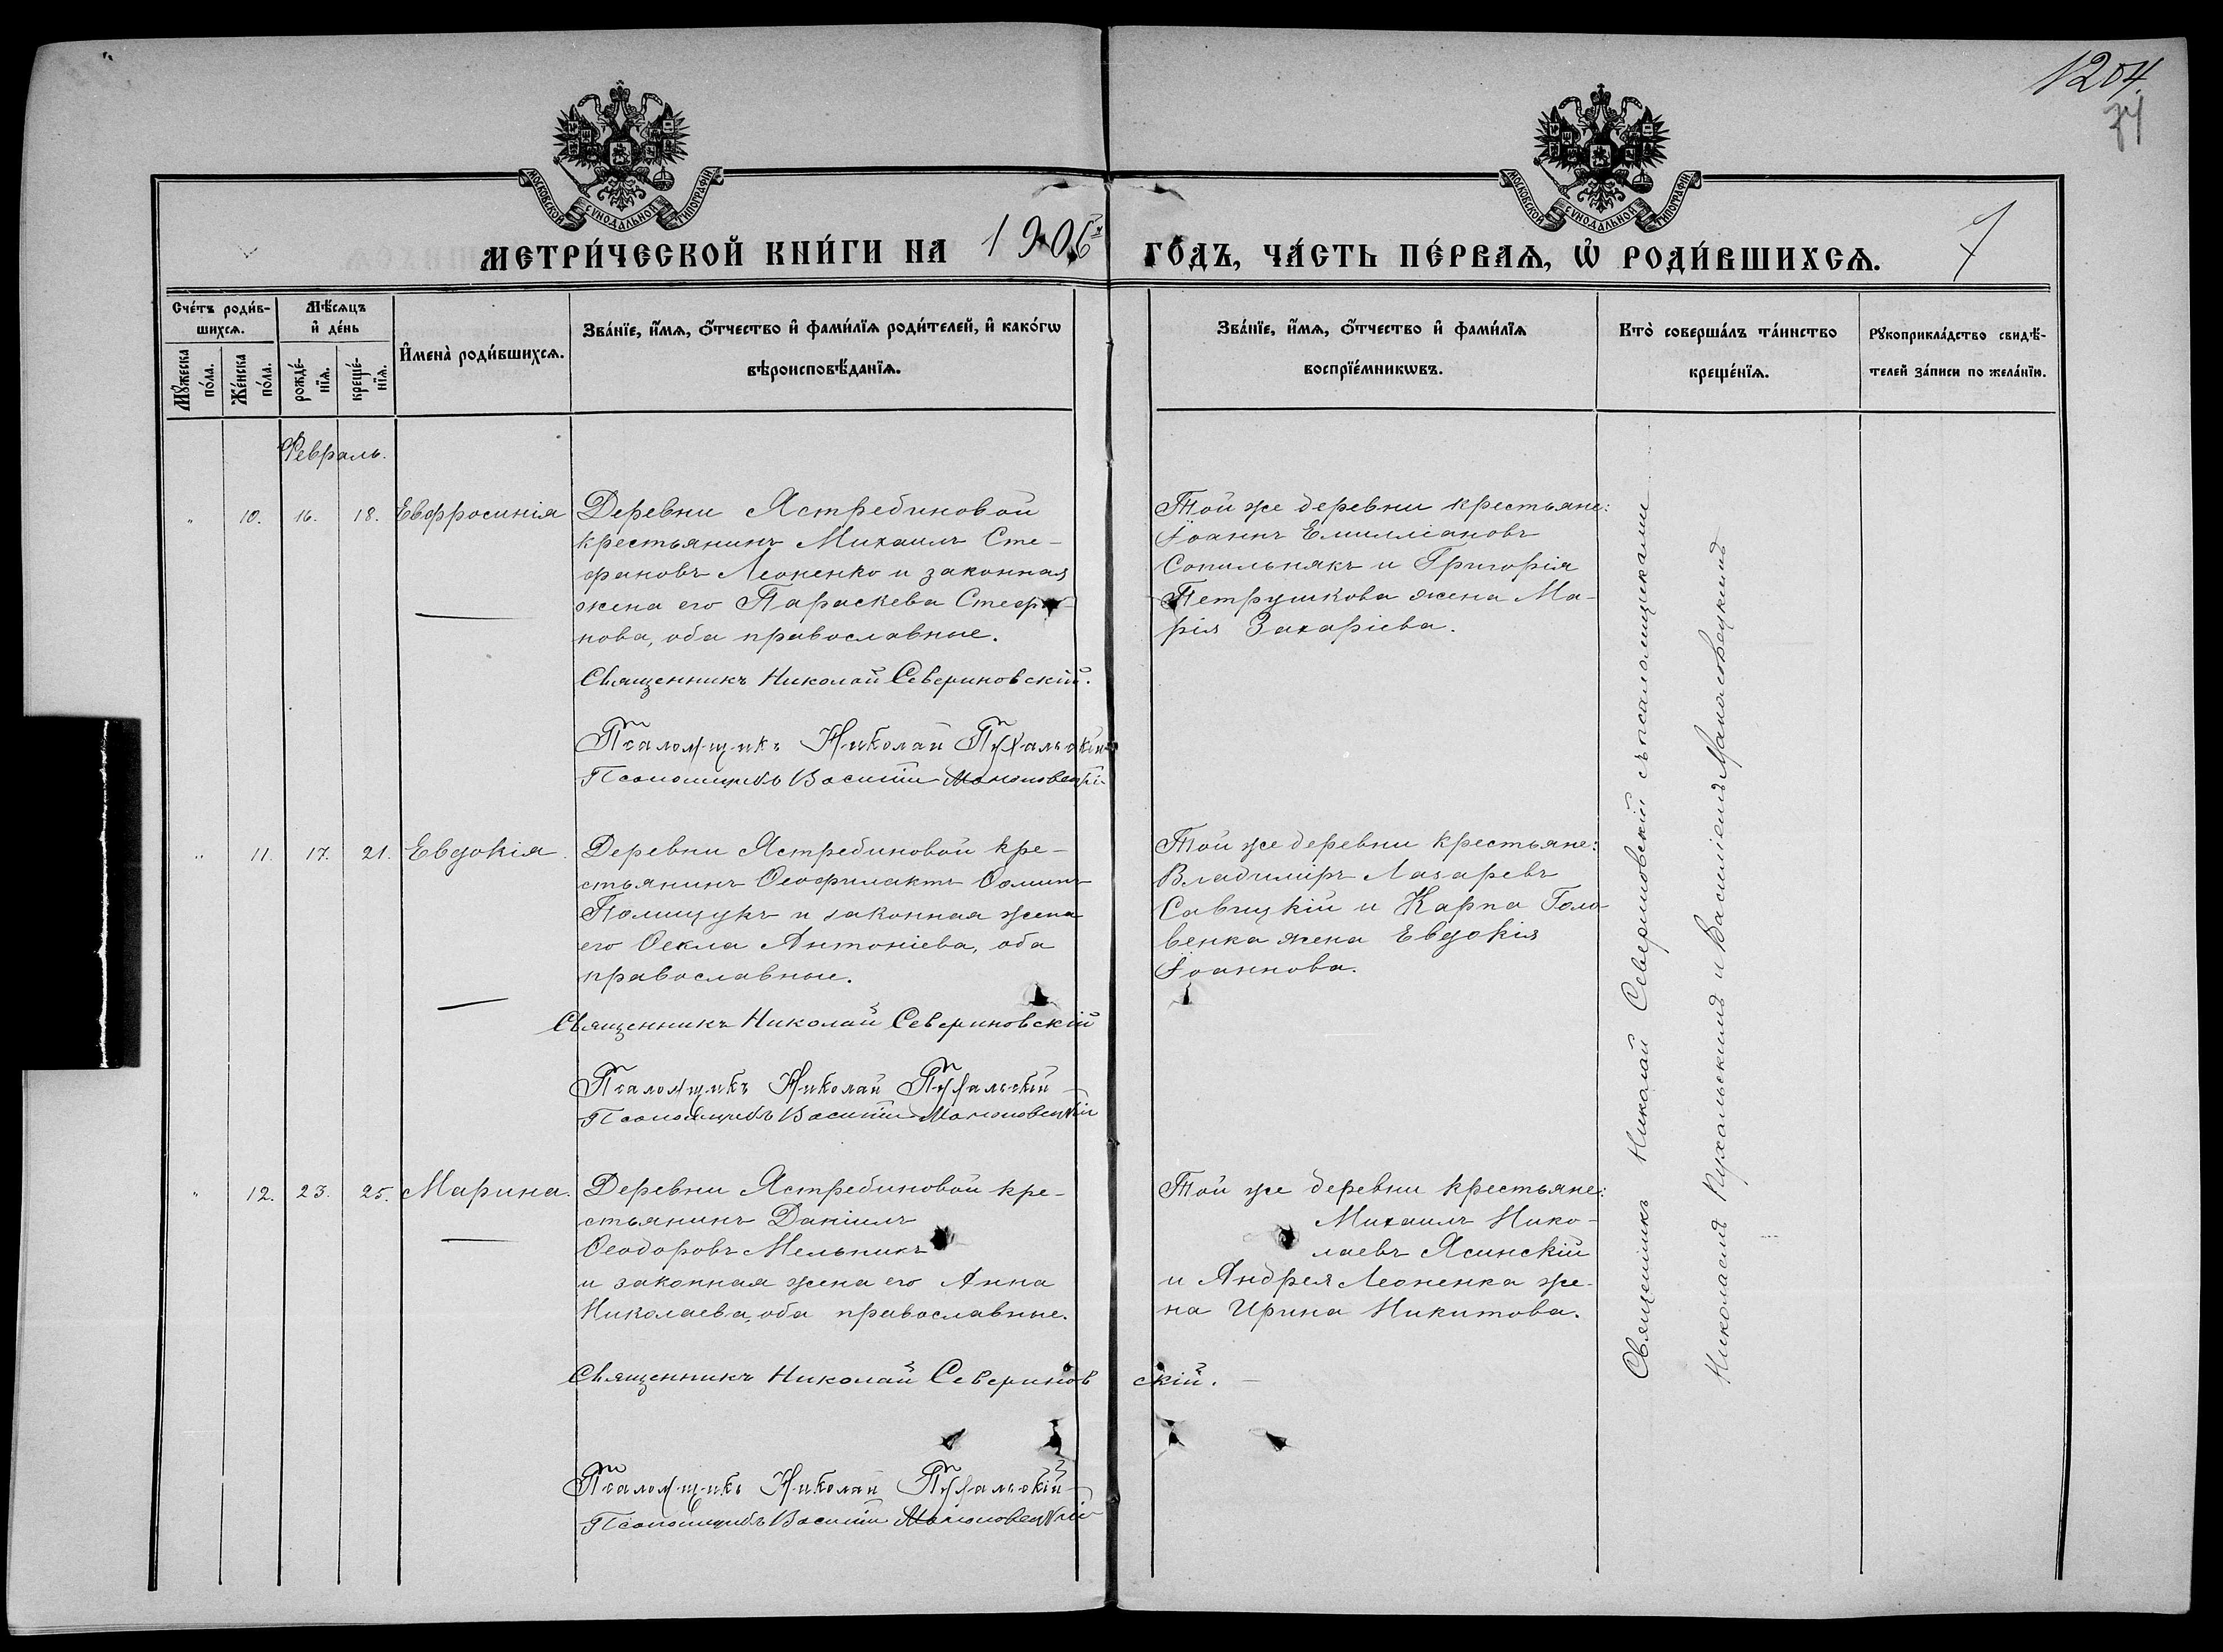 1204.
74
МОСКОВСКОЙ СѴНОДАЛЬНОЙ ТИПОГРАФІИ
МОСКОВСКОЙ СѴНОДАЛЬНОЙ ТИПОГРАФІИ
МЕТРИ́ЧЕСКОЙ КНИ́ГИ НА 1906й ГО́ДЪ, ЧА́СТЬ ПЕ́РВАѦ, Ѽ РОДИ́ВШИХСѦ. 7
Сче́тъ роди́в-
шихсѧ.
Мѣ́сѧцъ
и҆ де́нь
Мꙋ́жеска
по́ла.
Же́нска
по́ла.
рожде́-
нїѧ.
креще́-
нїѧ.
И҆мена̀ роди́вшихсѧ.
Зва́нїе, и҆́мѧ, ѻ҆́тчество и҆ фами́лїѧ роди́телей, и҆ како́гѡ
вѣроисповѣ́данїѧ.
Зва́нїе, и҆́мѧ, ѻ҆́тчество и҆ фами́лїѧ
воспрїе́мникѡвъ.
Кто̀ соверша́лъ та́инство
креще́нїѧ.
Рꙋкоприкла́дство свидѣ́-
телей за́писи по жела́нїю.
Февраль.
" 10. 16. 18. Евфросинія
Деревни Ястребиновой
крестьянинъ Михаилъ Сте-
фановъ Леоненко и законная
жена его Параскева Стефа-
нова, оба православные.
Священникъ Николай Севериновскій.
Псаломщикъ Николай Пухальскій
Псаломщикъ Василій Маколовецкій
Той же деревни крестьяне:
Іоаннъ Емиліановъ
Сопильнякъ и Григорія
Петрушкова жена Ма-
рія Захаріева.
" 11. 17. 21. Евдокія.
Деревни Ястребиновой кре-
стьянинъ Ѳеофилактъ Ѳоминъ
Полищукъ и законная жена
его Ѳекла Антоніева, оба
православные.
Священникъ Николай Севериновскій
Псаломщикъ Николай Пухальскій
Псаломщикъ Василій Маколовецкій
Той же деревни крестьяне:
Владиміръ Лазаревъ
Савицкій и Карпа Голо-
венка жена Евдокія
Іоаннова.
" 12. 23. 25. Марина.
Деревни Ястребиновой кре-
стьянинъ Даніилъ
Ѳеодоровъ Мельникъ
и законная жена его Анна
Николаева, оба православные.
Священникъ Николай Севериновскій.
Псаломщикъ Николай Пухальскій
Псаломщикъ Василій Маколовецкій
Той же деревни крестьяне:
Михаилъ Нико-
лаевъ Ясинскій
и Андрея Леоненка же-
на Ирина Никитова.
Священникъ Николай Севериновскій съ псаломщиками
Николаемъ Пухальскимъ и Василіемъ Маколовецкимъ